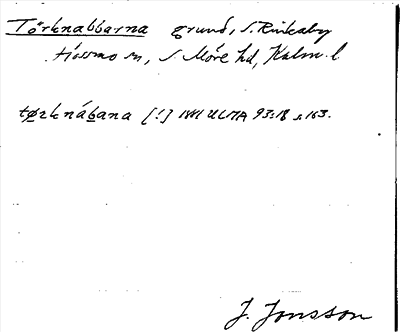 Törknabbarna grund, S. Rinkaby
Hossmo sn, S. Möre hd, Kalm. l
tørknábana [!] ULMA 93:18 s. 163.
J. Jonsson